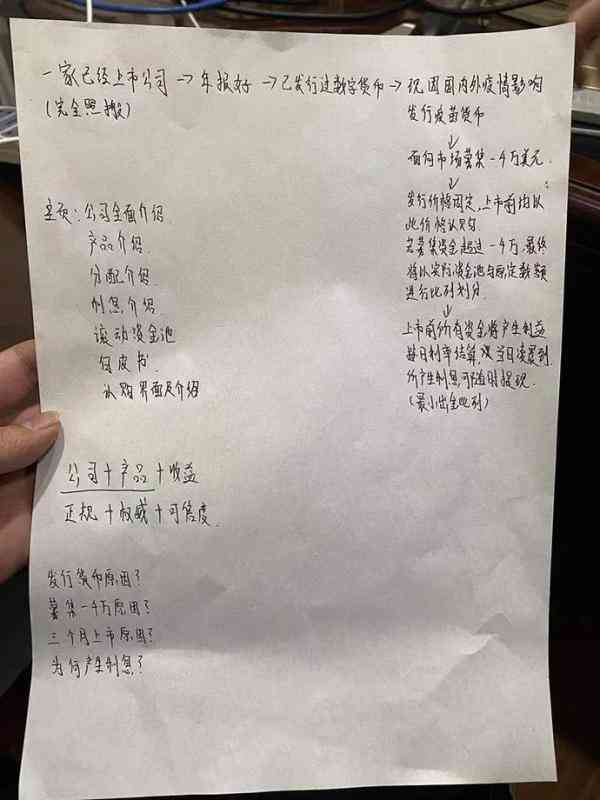 一家已经上市公司→年报好→已发行过数字货币→现因国内外疫情影响
(完全照搬)
发行疫苗货币
↓
面向市场募集一千万美元.
↓
发行价格固定,上市前均以
此价格认购
若募集资金超过一千万,最终
将以实际资金池与固定数额
进行比例划分.
↓
上市前所有资金将产生利益
每日利率结算,
所产生利息,可随时提现.
(最小出金比例)
主页:公司全面介绍
产品介绍
分配介绍
利息介绍
滚动资金池
白皮书
认购界面及介绍
公司+产品+收益
正规+权威+可信度
发行货币原因?
募集一千万原因?
三个月上市原因?
为何产生利息?